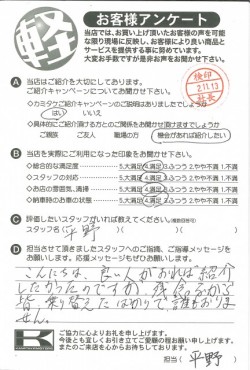 軽
お客様アンケート
当店では、お買い上げ頂いたお客様の声を可能
な限り現場に反映し、お客様により良い商品と
サービスを提供する事に努めています。
大変お手数ですが是非お声をお聞かせ下さい。
検印
2.11.13
社長
A 当店はご紹介を大切にしております。
ご紹介キャンペーンについてお聞かせ下さい。
・カミタケご紹介キャンペーンのご説明はありましたでしょうか
はい いいえ
・具体的にご紹介頂ける方とのご関係をお聞かせ頂けますでしょうか
ご親族 ご友人 職場の方 機会があれば紹介したい
B 当店を実際にご利用になった印象をお聞かせ下さい。
◇総合的な満足度 5.大満足 4.満足 3.ふつう 2.やや不満 1.不満
◇スタッフの対応 5.大満足 4.満足 3.ふつう 2.やや不満 1.不満
◇お店の雰囲気、清掃 5.大満足 4.満足 3.ふつう 2.やや不満 1.不満
◇納車時のお車の状態 5.大満足 4.満足 3.ふつう 2.やや不満 1.不満
C 評価したいスタッフがいれば教えてください。(複数回答可)
スタッフ名( 平野 )( )( )
D 担当させて頂きましたスタッフへのご指摘、ご指導メッセージを
お願いします。応援メッセージもぜひお願いします。
こんにちは、良い人がおれば紹介
したかったのですが、
皆、乗り替えたばかりで、誰もおりま
せん。
K
ご協力に心よりお礼を申し上げます。
今後とも宜しくお引き立てご愛顧の程お願い申し上げます。
またのご来店を心からお待ちしております。
担当( 平野 )